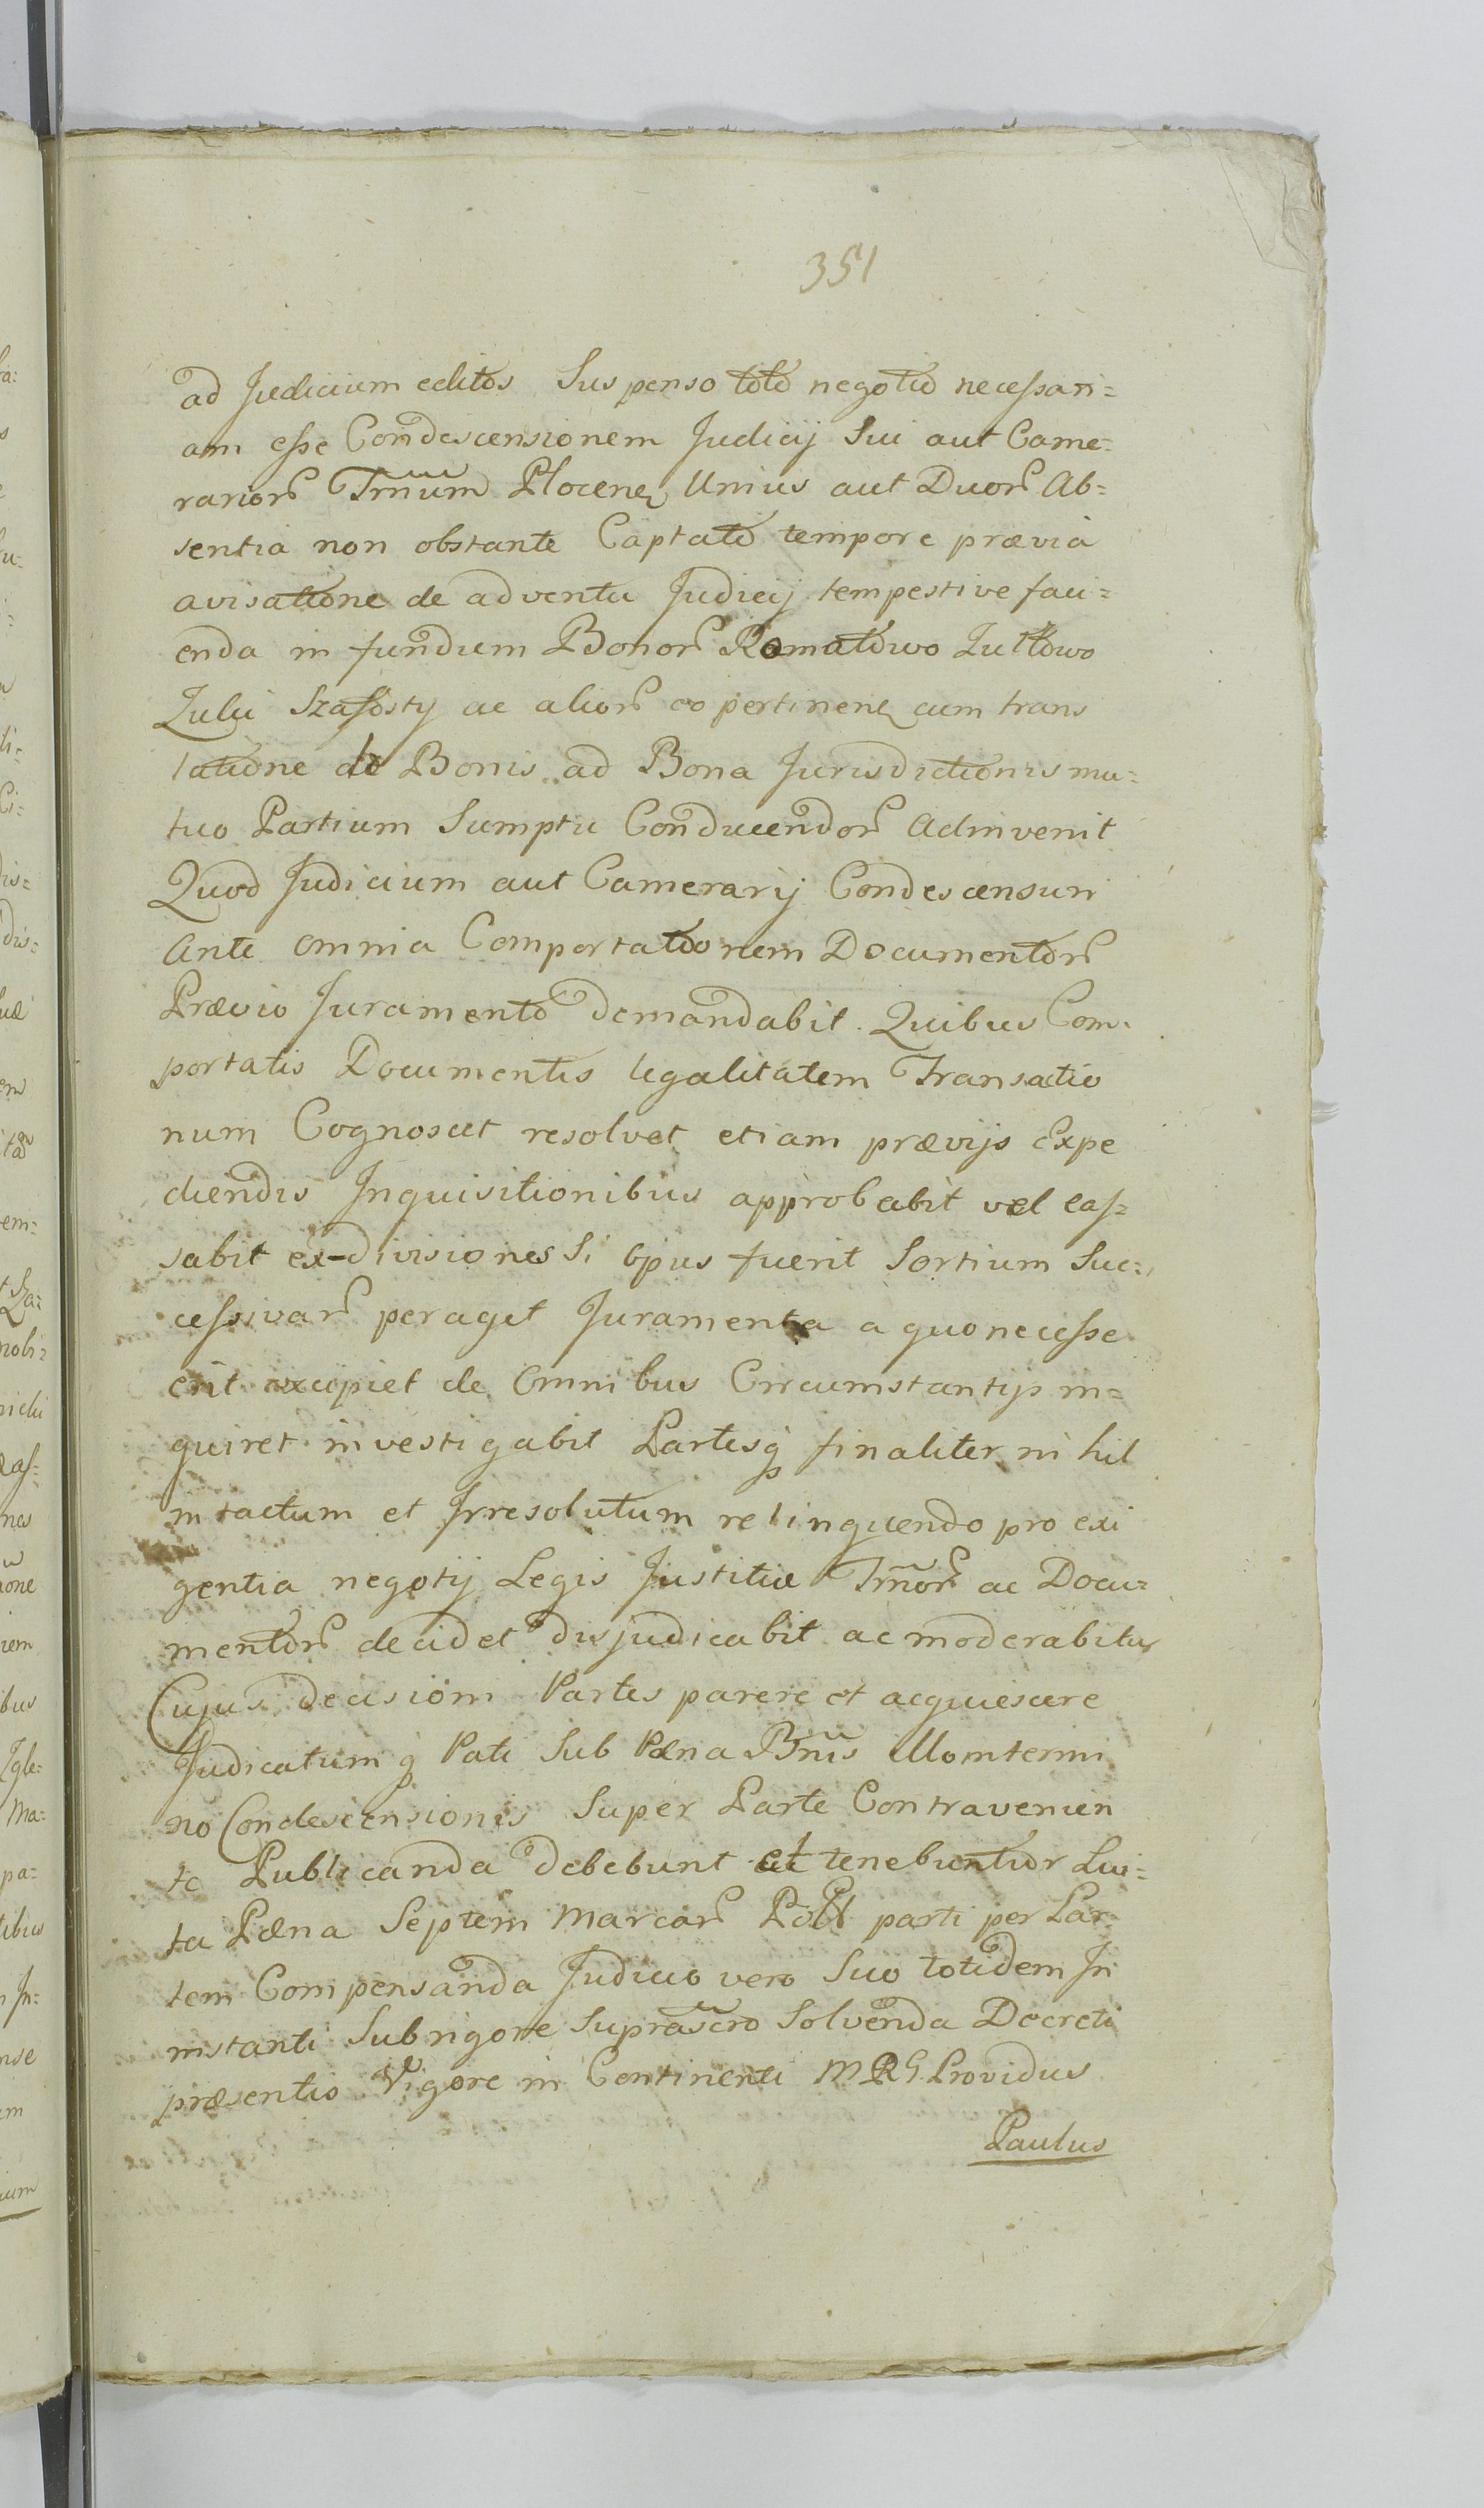 351
ad Judicium editos Suspenso toto negotio necessari=
am esse Condescensionem Judicij Sui aut Came=
rarior Trnum Plocen Unius aut Duor Ab=
sentia non obstante Captato tempore prævia
avisatione de adventu Judicij tempestive faci=
enda in fundum Bonor Romatowo Lutowo
Lulii ac alior eo pertinen cum trans
latione de Bonis ad Bona Jurisdictionis mu=
tuo Partium Sumptu Conducendor Adinvenit
Quod Judicium aut Camerarij Condescensuri
Ante omnia Comportationem Documentor
Prævio Juramento demandabit. Quibus Com=
portatis Documentis legalitatem Transactio
num Cognoscet resolvet etiam prævijs Expe
diendis Inquisitionibus approbabit vel cas=
sabit ex-divisiones Si opus fuerit Sortium Suc=
cessivar peraget Juramenta a quo necesse
erit excipiet de Omnibus Circumstantijs in=
quiret investigabit Partesq finaliter nihil
intactum et Irresolutum relinquendo pro exi
gentia negotij Legis Justitiæ Trnor ac Docu=
mentor decidet disjudicabit ac moderabitur
Cujus decisioni Partes parere et acquiescere
Judicatumq Pati Sub Pæna Bnis Momtermi
no Condescensionis Super Parte Contravenien
te Publicanda debebunt et tenebuntur Lui=
ta Pæna Septem Marcar Poll parti per Par
tem Compensanda Judicio vero Suo totidem In
instanti Sub rigore Suprascro Solvenda Decreti
præsentis Vigore in Continenti MRG. Providus
Paulus